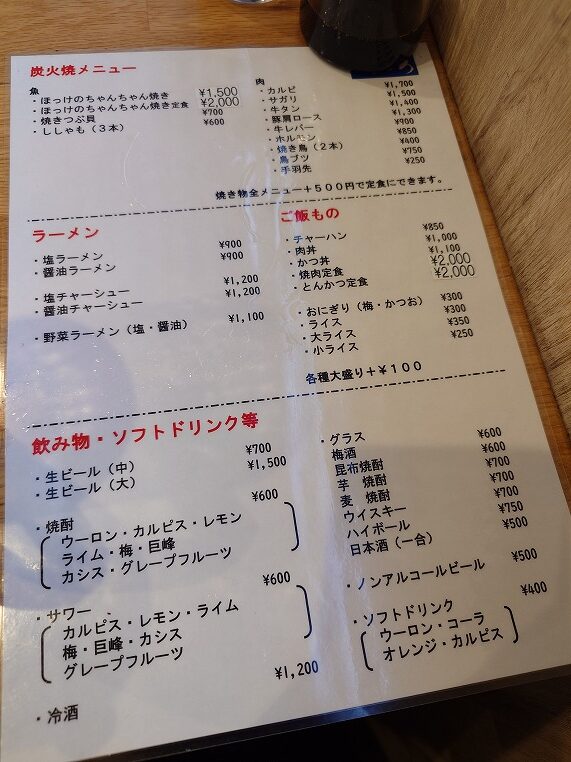 炭火焼メニュー
魚
・ほっけのちゃんちゃん焼き ¥1,500
・ほっけのちゃんちゃん焼き定食 ¥2,000
・焼きつぶ貝 ¥700
・ししゃも（３本） ¥600
肉
・カルビ ¥1,700
・サガリ ¥1,500
・牛タン ¥1,400
・豚肩ロース ¥1,300
・牛レバー ¥900
・ホルモン ¥850
・焼き鳥（２本） ¥400
・鳥ブツ ¥750
・手羽先 ¥250
焼き物全メニュー＋５００円で定食にできます。
ラーメン
・塩ラーメン ¥900
・醤油ラーメン ¥900
・塩チャーシュー ¥1,200
・醤油チャーシュー ¥1,200
・野菜ラーメン（塩・醤油） ¥1,100
ご飯もの
・チャーハン ¥850
・肉丼 ¥1,000
・かつ丼 ¥1,100
・焼肉定食 ¥2,000
・とんかつ定食 ¥2,000
・おにぎり（梅・かつお） ¥300
・ライス ¥300
・大ライス ¥350
・小ライス ¥250
各種大盛り＋￥１００
飲み物・ソフトドリンク等
・生ビール（中） ¥700
・生ビール（大） ¥1,500
・焼酎 ¥600
ウーロン・カルピス・レモン
ライム・梅・巨峰
カシス・グレープフルーツ
・サワー ¥600
カルピス・レモン・ライム
梅・巨峰・カシス
グレープフルーツ
・冷酒 ¥1,200
・グラス
梅酒 ¥600
昆布焼酎 ¥600
芋　焼酎 ¥700
麦　焼酎 ¥700
ウイスキー ¥700
ハイボール ¥750
日本酒（一合） ¥500
・ノンアルコールビール ¥500
・ソフトドリンク ¥400
ウーロン・コーラ
オレンジ・カルピス